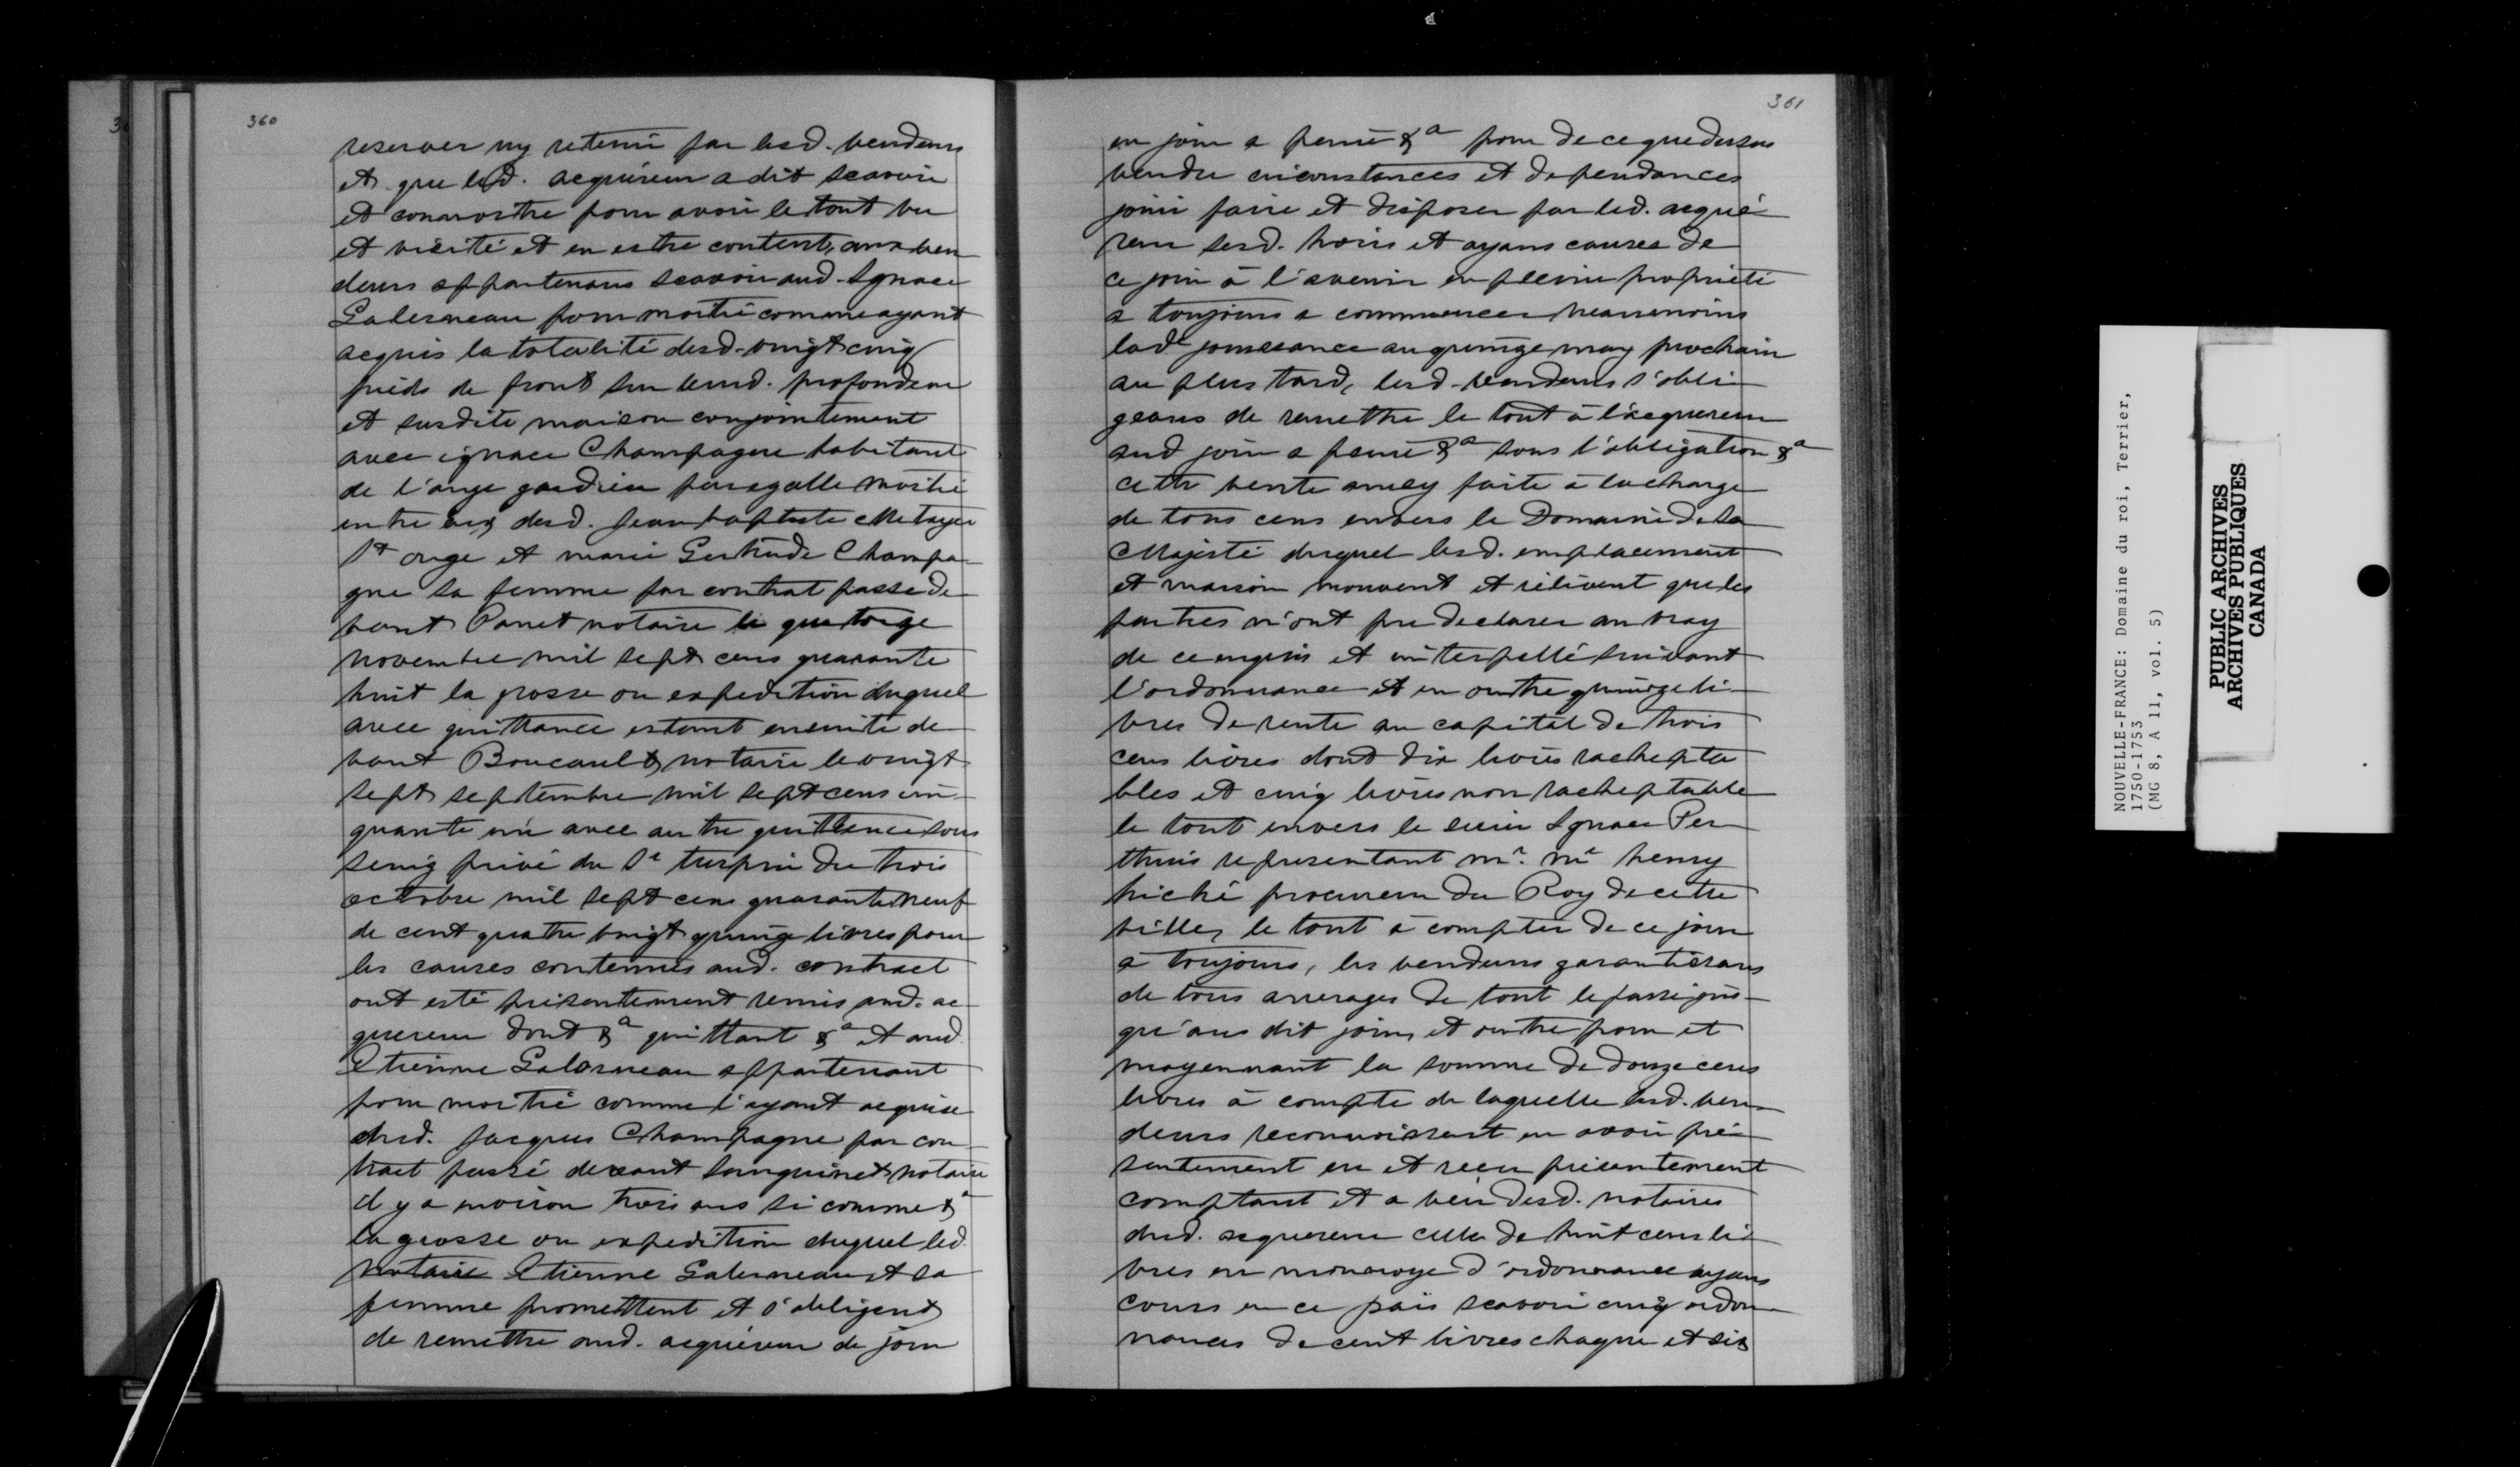 360
reserver ny retenir par lesd. vendeurs
et que led. acquereur a dit scavoir
et connoistre pour avoir le tout vu
et visité et en estre content, aux ven
deurs appartenans scavoir aud. Ignace
Galerneau pour moitié comme ayant
acquis la totalité desd. vingt cinq
pieds de front sur leurd. profondeur
et susdite maison conjointement
avec ignace Champagne habitant
de l'ange gardien par egalle moitié
entre eux desd. Jean baptiste Metayer
St onge et marie Gertrude Champa-
gne sa femme par contrat passé de
vant Panet notaire le quatorze
novembre mil sept cens quarante
huit la grosse ou expedition duquel
avec quittance estant ensuite de
vant Boucault notaire le vingt
sept septembre mil sept cens cin-
quante un avec autre quittance sous
seing privé du Sr turpin du trois
octobre mil sept cens quarante neuf
de cent quatre vingt quinze livres pour
les causes contenues aud. contract
ont esté présentement remis aud. ac-
quereur dont &a quittant &a et aud.
Etienne Galerneau appartenant
pour moitié comme l'ayant acquise
dud. Jacques Champagne par con-
tract passé devant Sanguinet notaire
il y a environ trois ans si comme &a
la grosse ou expedition duquel led.
notaire Etienne Galerneau et sa
femme promettent et s'obligent
de remettre aud. acquéreur de jour
361
en jour a peine &a pour de ce que dessus
vendu circonstances et dependances
jouir faire et disposer par led. acqué-
reur sesd. hoirs et ayans causes de
ce jour à l'avenir en pleine propriété
a toujours a commencer neanmoins
lade jouissance au quinze may prochain
au plus tard, lesd. vendeurs s'obli-
geans de remettre le tout à l'acquereur
aud jour a peine &a sous l'obligation &a
cette vente ainsy faite à la charge
de tous cens envers le Domaine de Sa
Majesté duquel lesd. emplacement
et maison mouvent et relèvent que les
parties n'ont pu declarer au vray
de ce enquis et interpellé suivant
l'ordonnance et en outre quinze li-
vres de rente au capital de trois
cens livres dont dix livres racheptа
bles et cinq livres non racheptable
le tout envers le sieur Ignace Per-
thuis representant mr. me henry
hiché procureur du Roy de cette
ville, le tout à compter de ce jour
à toujours, les vendeurs garantissans
de tous arrerages de tout le passé jus-
qu'aus dit jour, et outre pour et
moyennant la somme de douze cens
livres à compte de laquelle lesd. ven-
deurs reconnoissent en avoir pré-
sentement eu et receu présentement
comptant et a veüe desd. notaires
dud. acquereur celle de huit cens li-
vres en monnoye d'ordonnance ayans
cours en ce païs scavoir cinq ordon-
nances de cent livres chaque et six
NOUVELLE-FRANCE: Domaine du roi, Terrier,
1750-1753
(MG 8, A 11, vol. 5)
PUBLIC ARCHIVES
ARCHIVES PUBLIQUES
CANADA